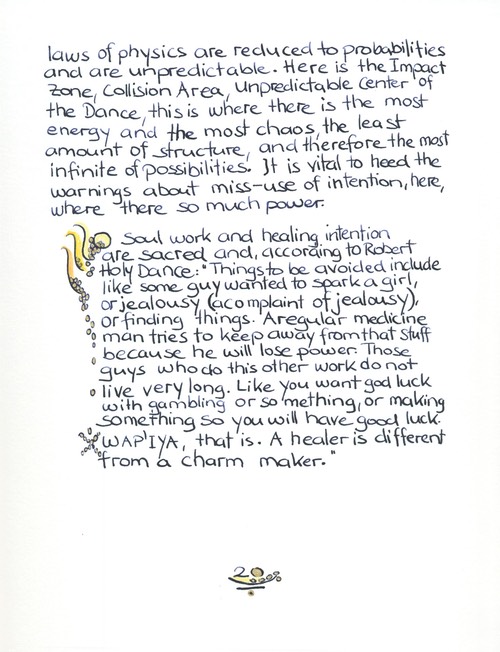 laws of physics are reduced to probabilities
and are unpredictable. Here is the Impact
Zone, Collision Area, Unpredictable Center of
the Dance, this is where there is the most
energy and the most chaos, the least
amount of structure, and therefore the most
infinite of possibilities. It is vital to heed the
warnings about miss-use of intention, here,
where there so much power.
Soul work and healing intention
are sacred and, according to Robert
Holy Dance: "Things to be avoided include
like some guy wanted to spark a girl,
or jealousy (a complaint of jealousy),
or finding things. A regular medicine
man tries to keep away from that stuff
because he will lose power. Those
guys who do this other work do not
live very long. Like you want god luck
with gambling or so mething, or making
something so you will have good luck.
WAPIYA, that is. A healer is different
from a charm maker."
20